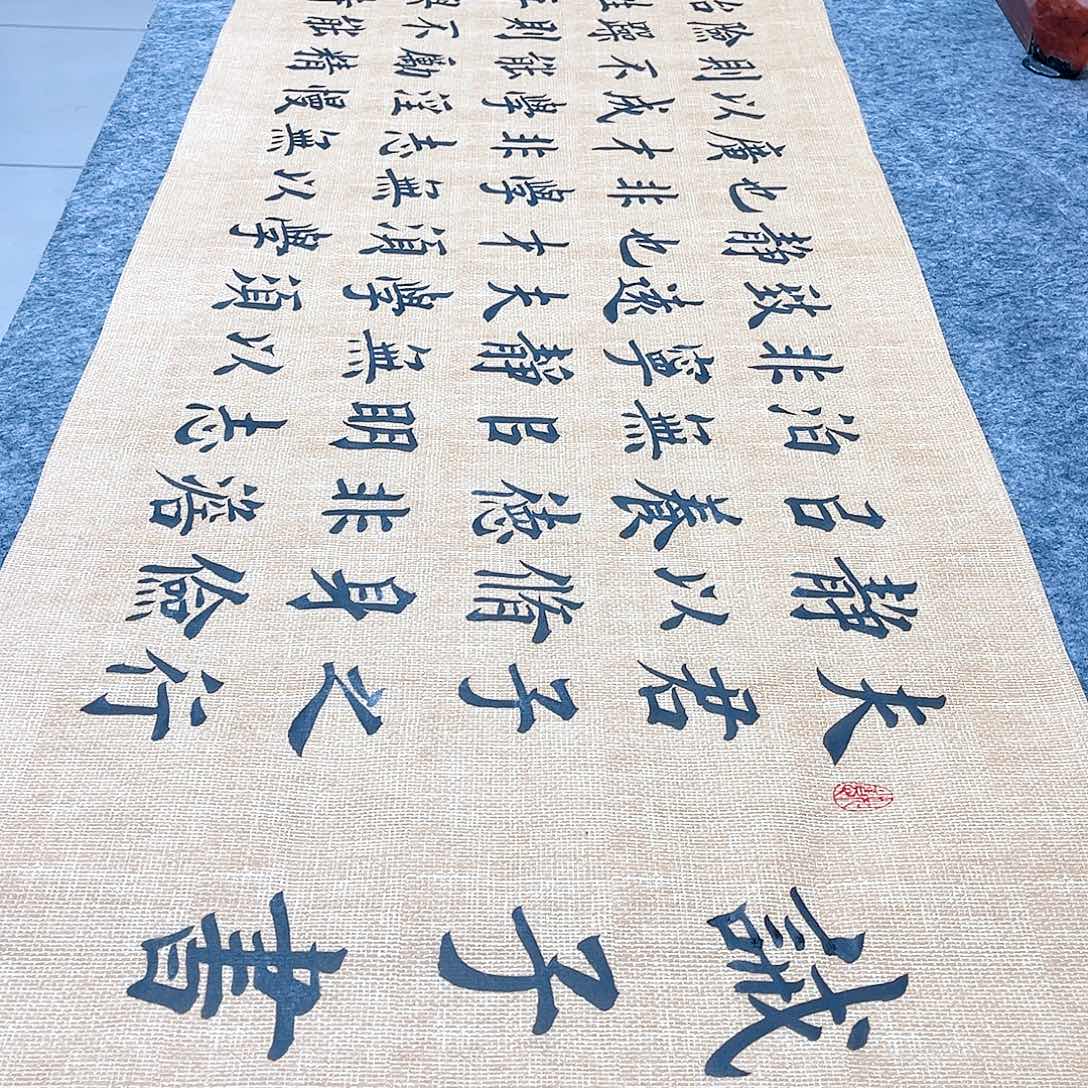 誡子書
夫君子之行
靜㠯脩身儉
㠯養德非澹
泊無㠯明志
非寧靜無以
致遠夫學須
靜也才須學
也非學無以
廣才非志無
以成學淫慢
則不能勵精
險躁則不能